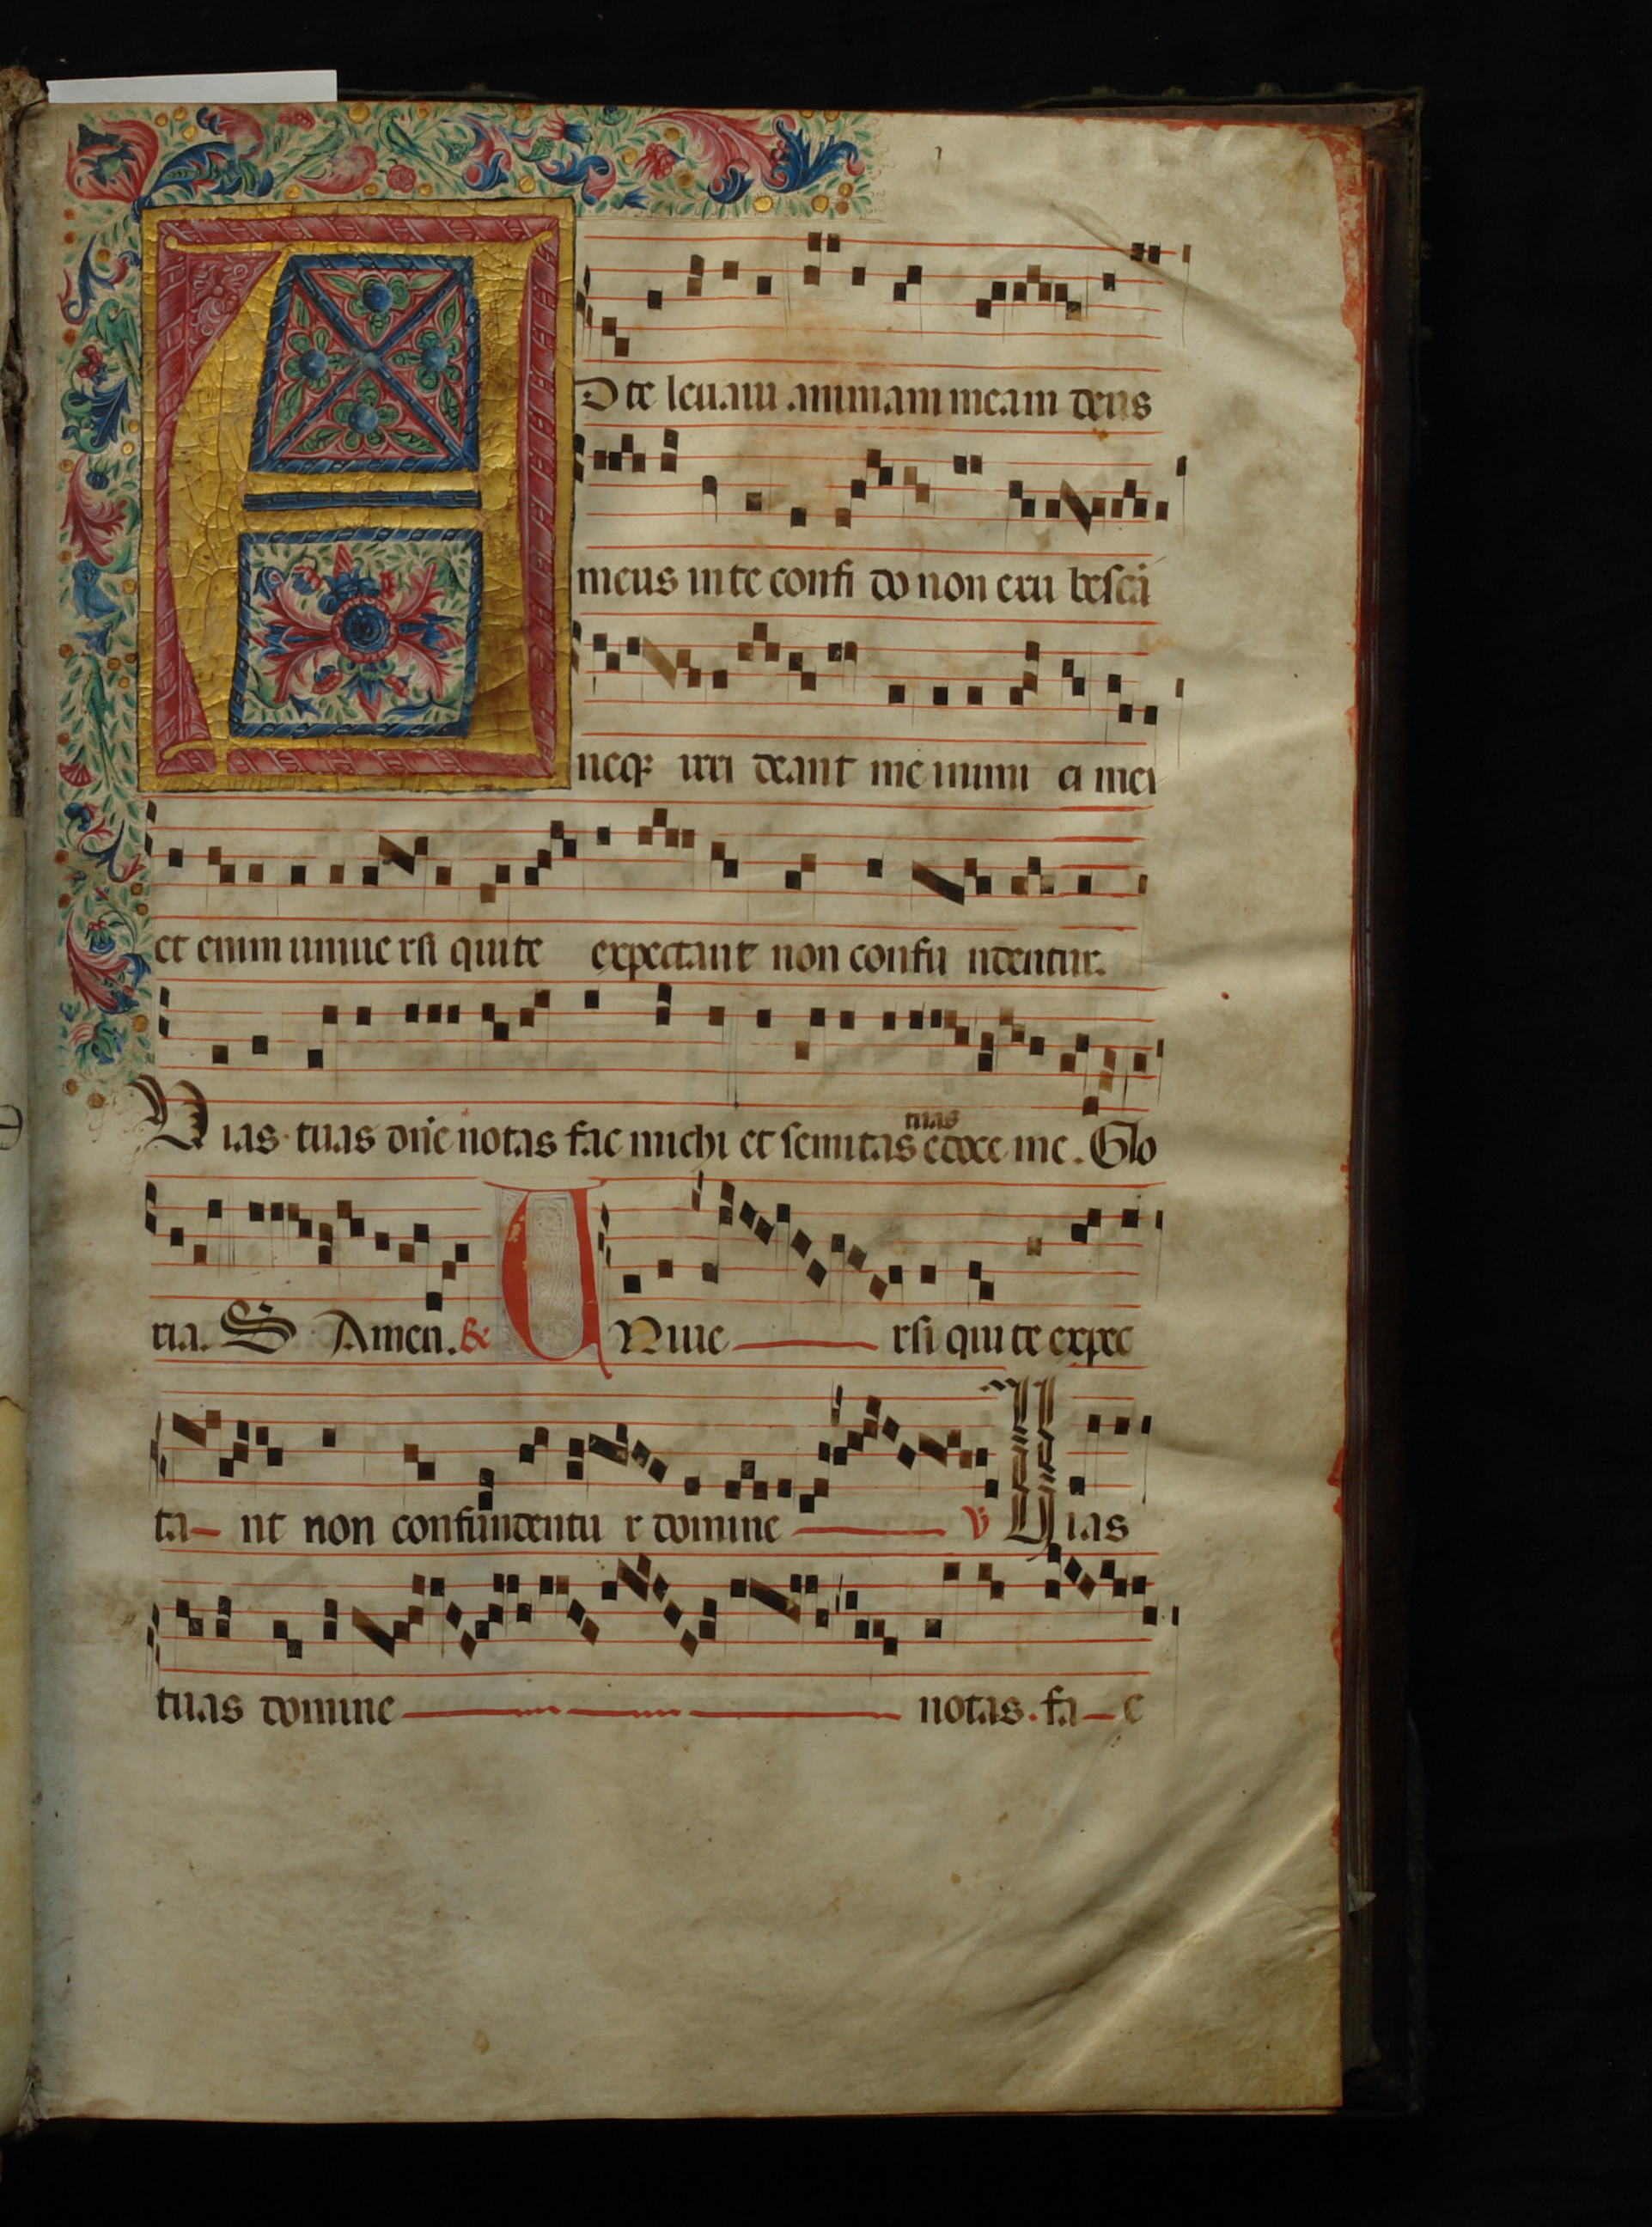 AD te leuaui animam meam deus
meus in te confi do non eru besca
neqꝫ irri deant me inimi ci mei
et enim uniue rsi qui te expectant non confu ndentur.
Vias tuas dñe notas fac michi et semitas tuas edoce me. Glo
ria. S Amen. & VNiue rsi qui te expec
ta nt non confundentu r domine ℣ Vias
tuas domine notas. fa c